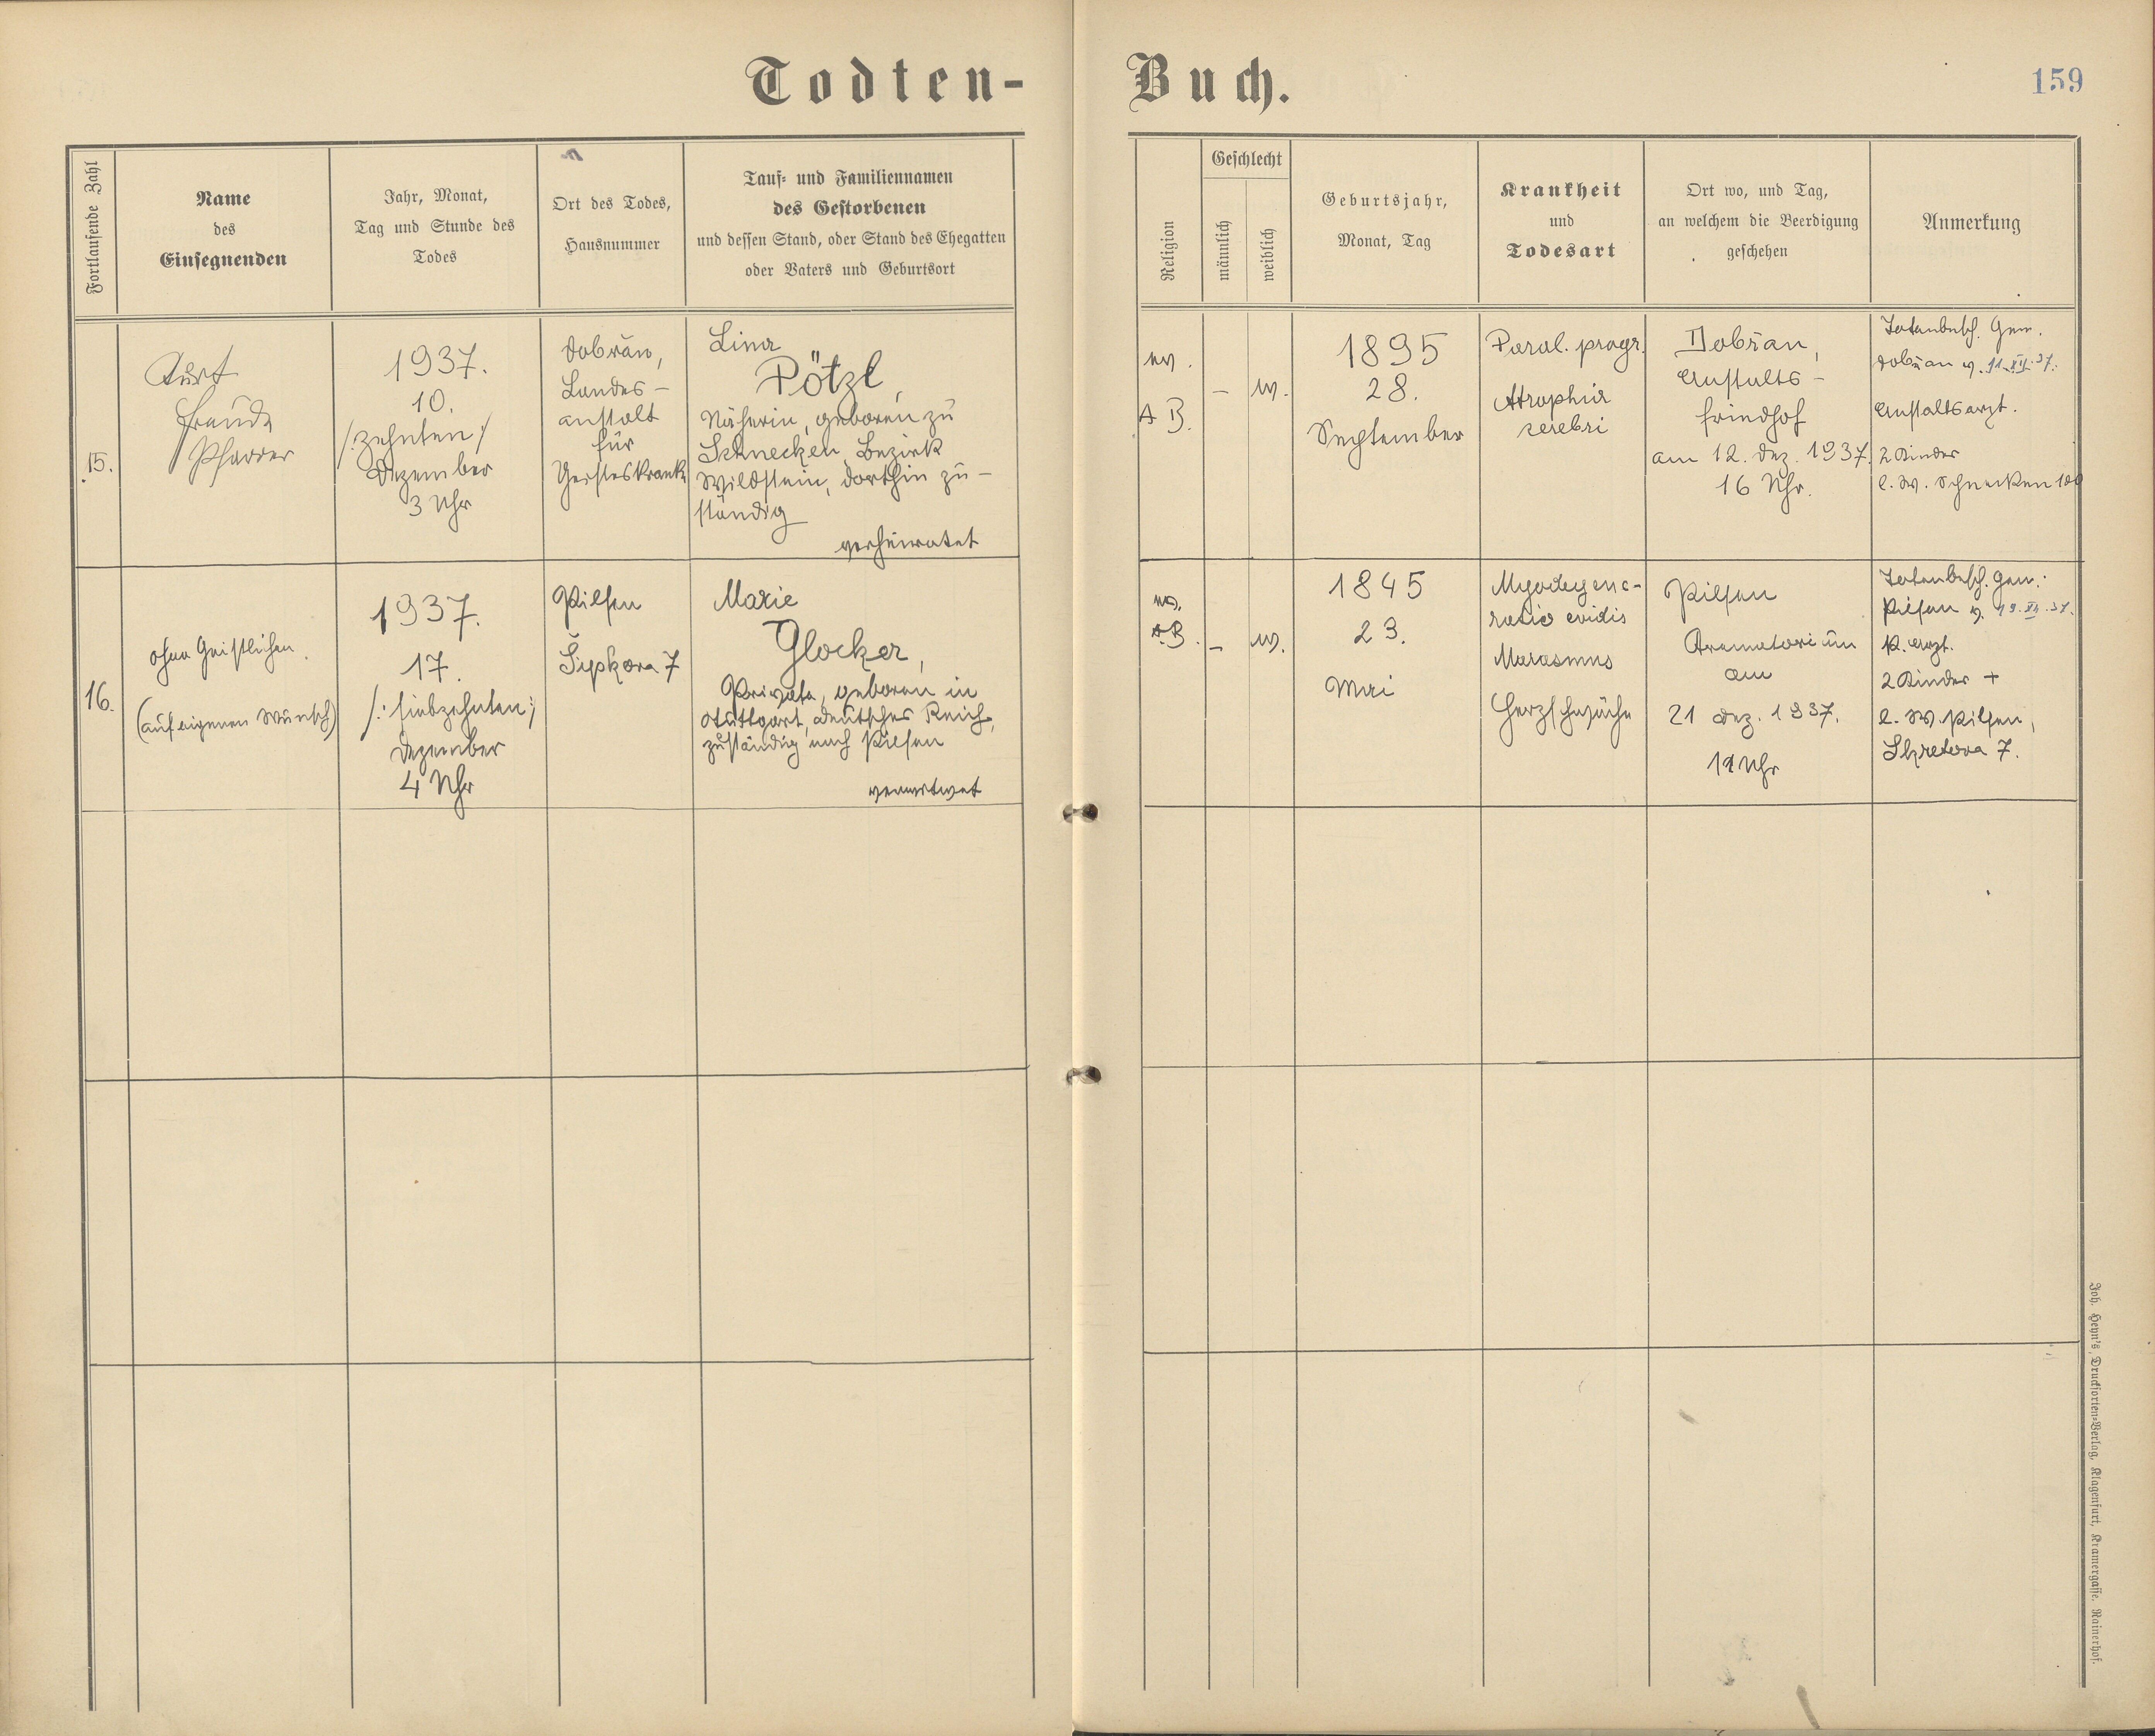 Todten-Buch.
159
Fortlaufende Zahl
Name
des
Einsegnenden
Jahr, Monat,
Tag und Stunde des
Todes
Ort des Todes,
Hausnummer
Tauf- und Familiennamen
des Gestorbenen
und dessen Stand, oder Stand des Ehegatten
oder Vaters und Geburtsort
Religion
Geschlecht
männlich
weiblich
Geburtsjahr,
Monat, Tag
Krankheit
und
Todesart
Ort wo, und Tag,
an welchem die Beerdigung
geschehen
Anmerkung
15.
Kurt
Freude
Pfarrer
1937.
10.
/:zehnten/
Dezember
3 Uhr
Dobřan,
Landes-
anstalt
für
Geisteskranke
Lina
Pötzl,
Näherin, geboren zu
Schnecken, Bezirk
Wildstein, dorthin zu-
ständig
verheiratet
ev.
A B.
–
w.
1895
28.
September
Paral. progr.
Atrophia
cerebri
Dobřan,
Anstalts-
friedhof
am 12. Dez. 1937.
16 Uhr.
Totenbesch. Gem.
Dobřan v. 11. XII. 37.
Anstaltsarzt.
2 Kinder
l. W. Schnecken
16.
ohne Geistlichen.
(auf eigenen Wunsch)
1937.
17.
/:siebzehnten:/
Dezember
4 Uhr
Pilsen
Marie
Glocker,
Private, geboren in
Stuttgart, deutsches Reich,
zuständig nach Pilsen
verwitwet
ev.
A.B.
–
w.
1845
23.
Mai
Myodegene-
ratio cordis
Marasmus
Herzschwäche
Pilsen
Krematorium
am
21 Dez. 1937.
Uhr
Totenbesch. Gem.:
Pilsen v. 19. XII. 37.
2 Kinder +
l. W. Pilsen,
Skretova 7.
Joh. Heyn's, Drucksorten-Verlag, Klagenfurt, Kramergasse, Rainerhof.